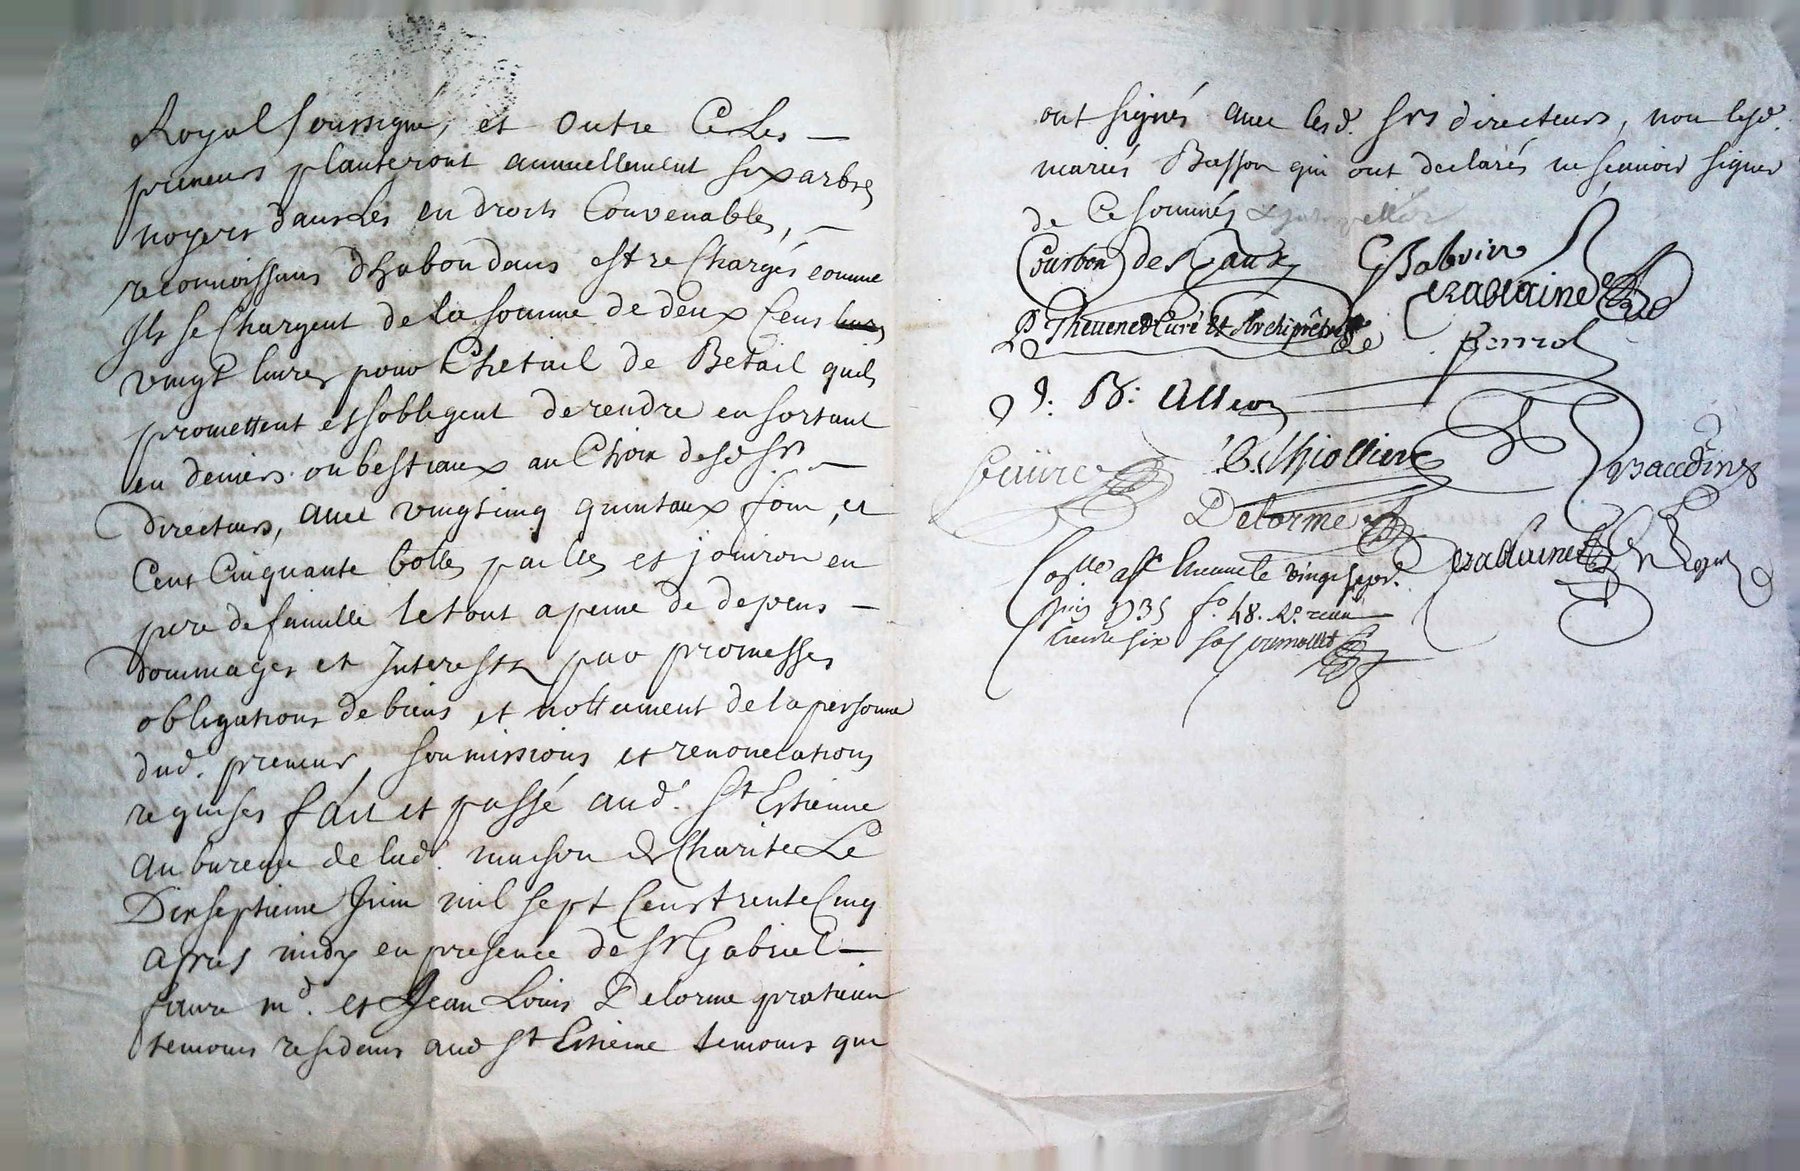 Royal soussigné, et outre Ce Les
preneurs planteront annuellement six arbres
noyers dans Les endroits Convenables,
reconnoissans d'habondans estre Chargés comme
Ils se Chargent de la somme de deux Cens
vingt livres pour Chetail de Betail quils
promettent et soblegent de rendre en sortant
en deniers ou bestiaux au Choix desd srs
directeurs, avec vingt cinq quintaux foin, et
Cent Cinquante bottes pailles et jouiron en
pere de famille le tout a peine de depens
dommages et Interests par promesses
obligations de biens et nottament de la personne
dud. preneur, soumissions et renonciations
requises fait et passé aud. St Estienne
au bureau de lad. maison de Charité Le
Dixseptieme Juin mil sept Cens trente Cinq
apres midy en presence de sr Gabriel
faure md. et Jean Louis Delorme praticien
temoins residens aud St Estienne temoins qui
ont signés avec lesd. srs directeurs, non lesd.
mariés Basson qui ont declarés ne scavoir signer
de Ce sommés
Courbon des Gaux GBalvin
ezablaine
P Thevenet Curé et Archiprêtre
perrol
J: B: Alleon
faüre B. thiollier baudin
Delorme
ezablaine
Collé a st Etienne le vingt sept
juin 1735 fo. 48. Ro. recu
trente six sols